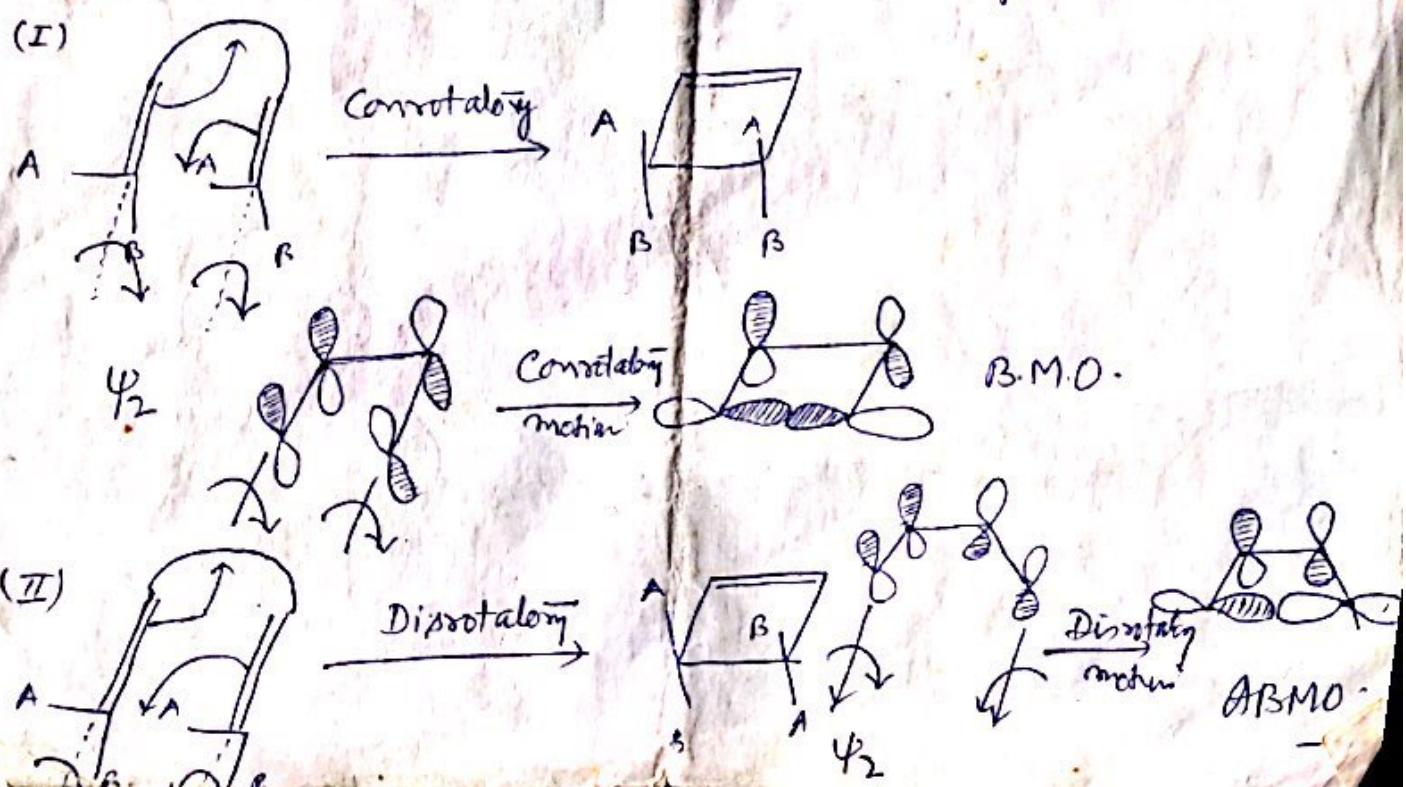 (I)
Conrotatory
A A A A
B B B B
Ψ2
Conrotatory
motion
B.M.O.
(II)
Disrotatory
A A A B
B B B A
Ψ2
Disrotatory
motion
ABMO.